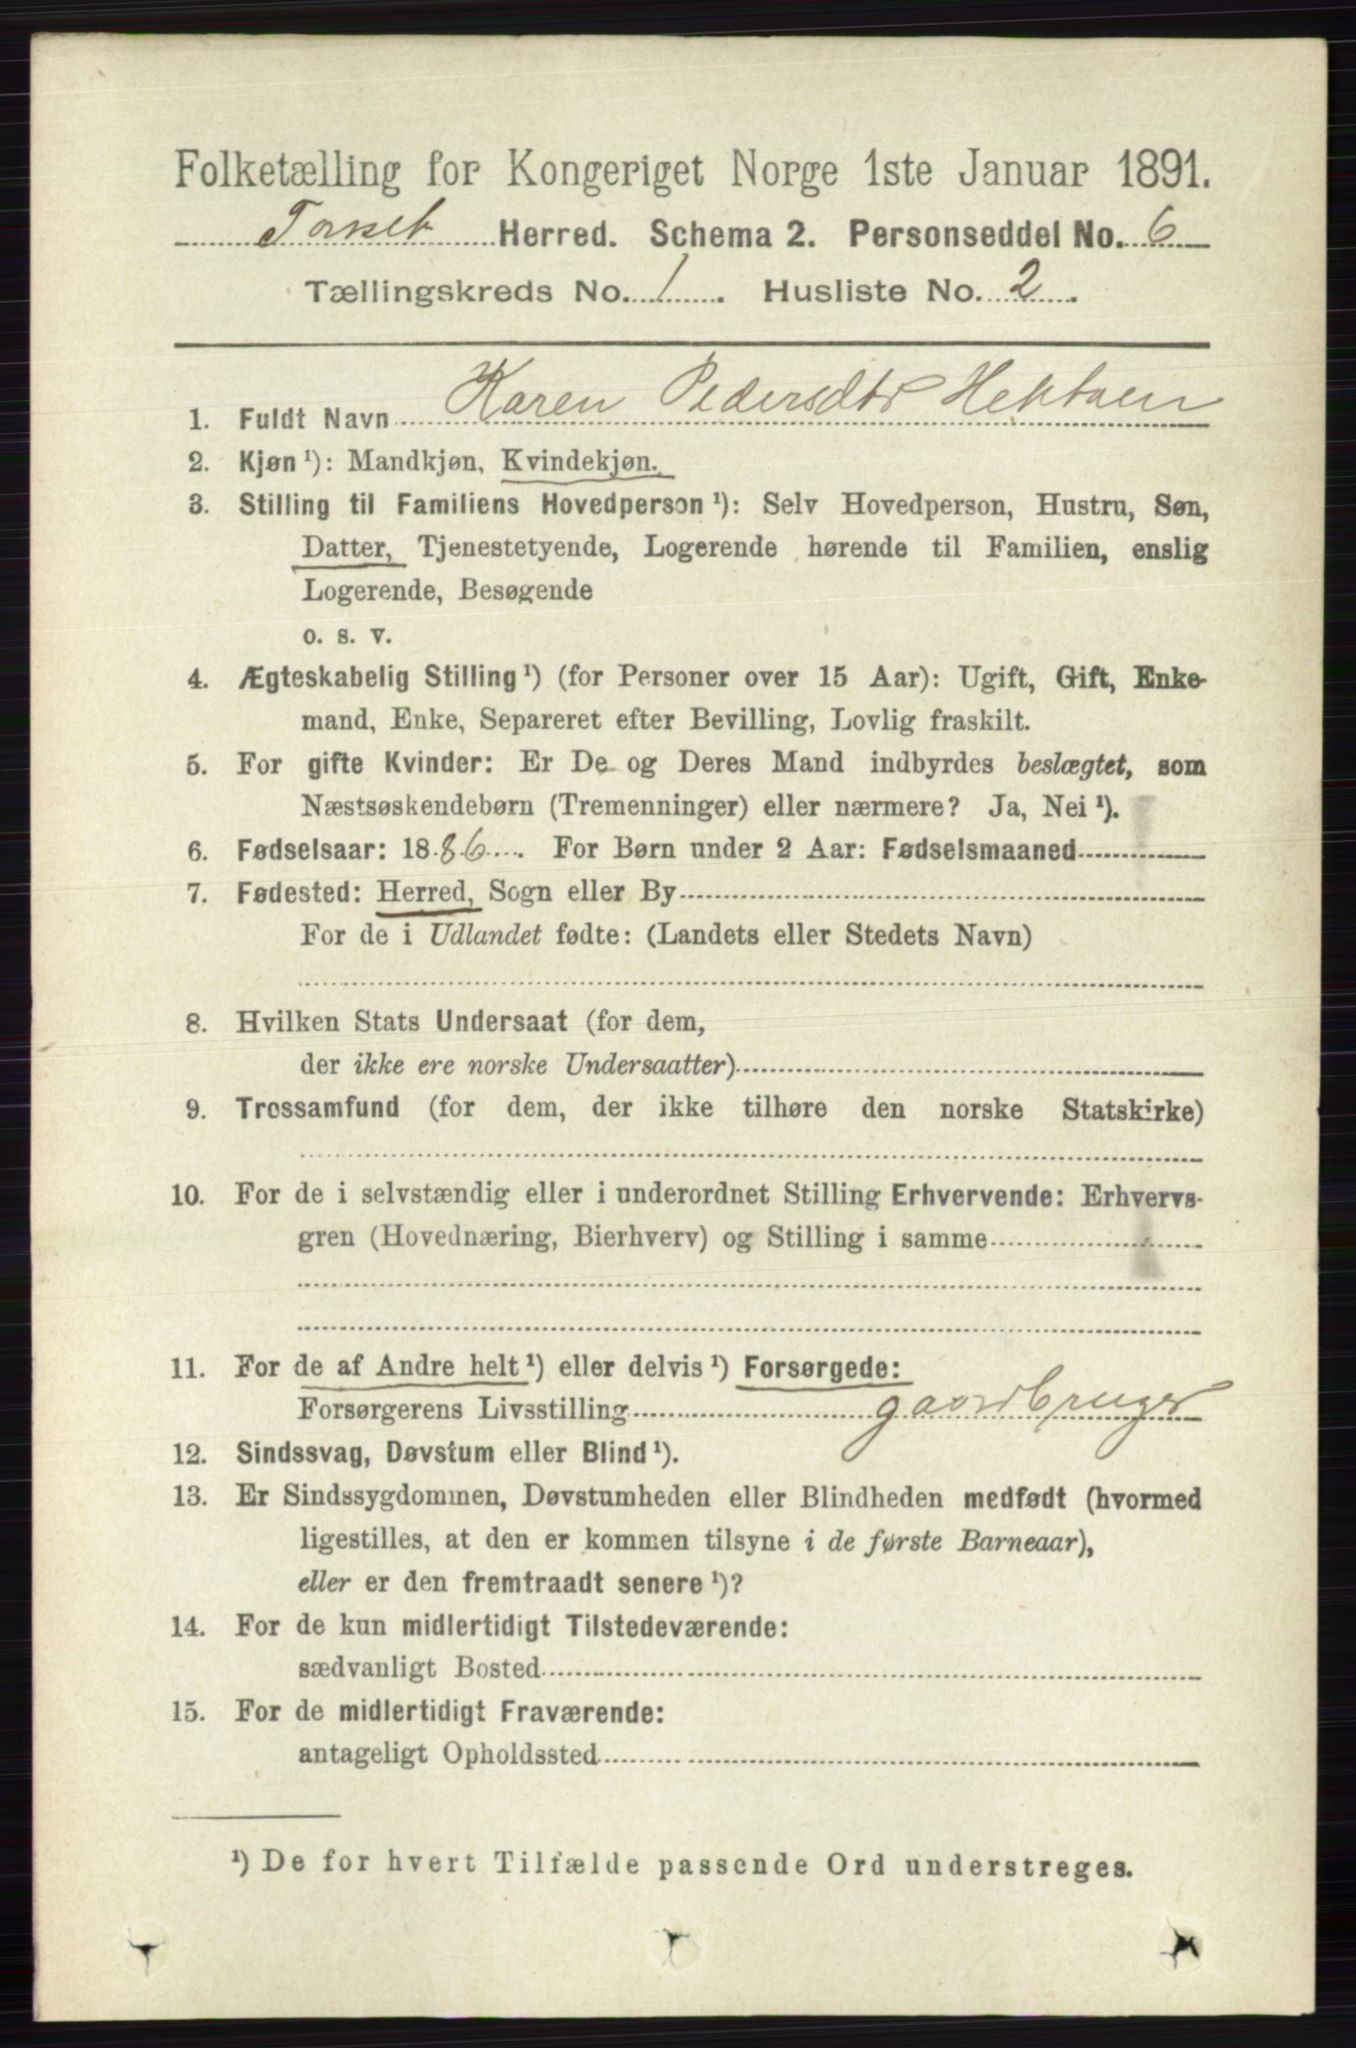 Folketælling for Kongeriget Norge 1ste Januar 1891.
Torset Herred. Schema 2. Personseddel No. 6
Tællingskreds No. 1. Husliste No. 2.
1. Fuldt Navn Karen Pedersdtr Hektoen
2. Kjøn ¹): Mandkjøn, Kvindekjøn.
3. Stilling til Familiens Hovedperson ¹): Selv Hovedperson, Hustru, Søn,
Datter, Tjenestetyende, Logerende hørende til Familien, enslig
Logerende, Besøgende
o. s. v.
4. Ægteskabelig Stilling ¹) (for Personer over 15 Aar): Ugift, Gift, Enke-
mand, Enke, Separeret efter Bevilling, Lovlig fraskilt.
5. For gifte Kvinder: Er De og Deres Mand indbyrdes beslægtet, som
Næstsøskendebørn (Tremenninger) eller nærmere? Ja, Nei ¹).
6. Fødselsaar: 1886. For Børn under 2 Aar: Fødselsmaaned
7. Fødested: Herred, Sogn eller By
For de i Udlandet fødte: (Landets eller Stedets Navn)
8. Hvilken Stats Undersaat (for dem,
der ikke ere norske Undersaatter)
9. Trossamfund (for dem, der ikke tilhøre den norske Statskirke)
10. For de i selvstændig eller i underordnet Stilling Erhvervende: Erhvervs-
gren (Hovednæring, Bierhverv) og Stilling i samme
11. For de af Andre helt ¹) eller delvis ¹) Forsørgede:
Forsørgerens Livsstilling gaardbruger
12. Sindssvag, Døvstum eller Blind ¹).
13. Er Sindssygdommen, Døvstumheden eller Blindheden medfødt (hvormed
ligestilles, at den er kommen tilsyne i de første Barneaar),
eller er den fremtraadt senere ¹)?
14. For de kun midlertidigt Tilstedeværende:
sædvanligt Bosted
15. For de midlertidigt Fraværende:
antageligt Opholdssted
¹) De for hvert Tilfælde passende Ord understreges.